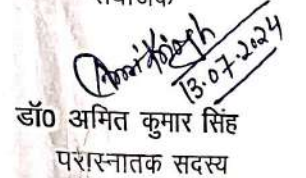 संयोजक
13.07.2024
डॉ0 अमित कुमार सिंह
परास्नातक सदस्य